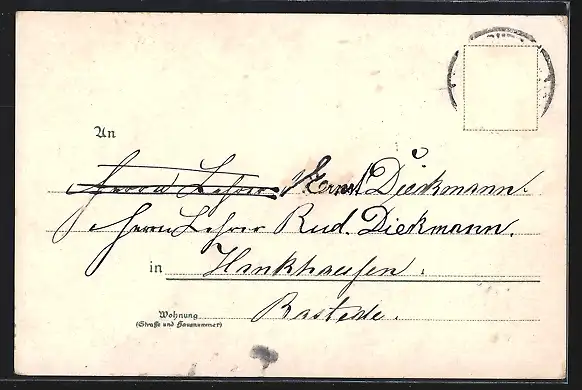 An
Herrn Lehrer Ernst Dieckmann.
Herrn Lehrer Rud. Diekmann.
in Hankhausen.
Rastede.
Wohnung
(Straße und Hausnummer)